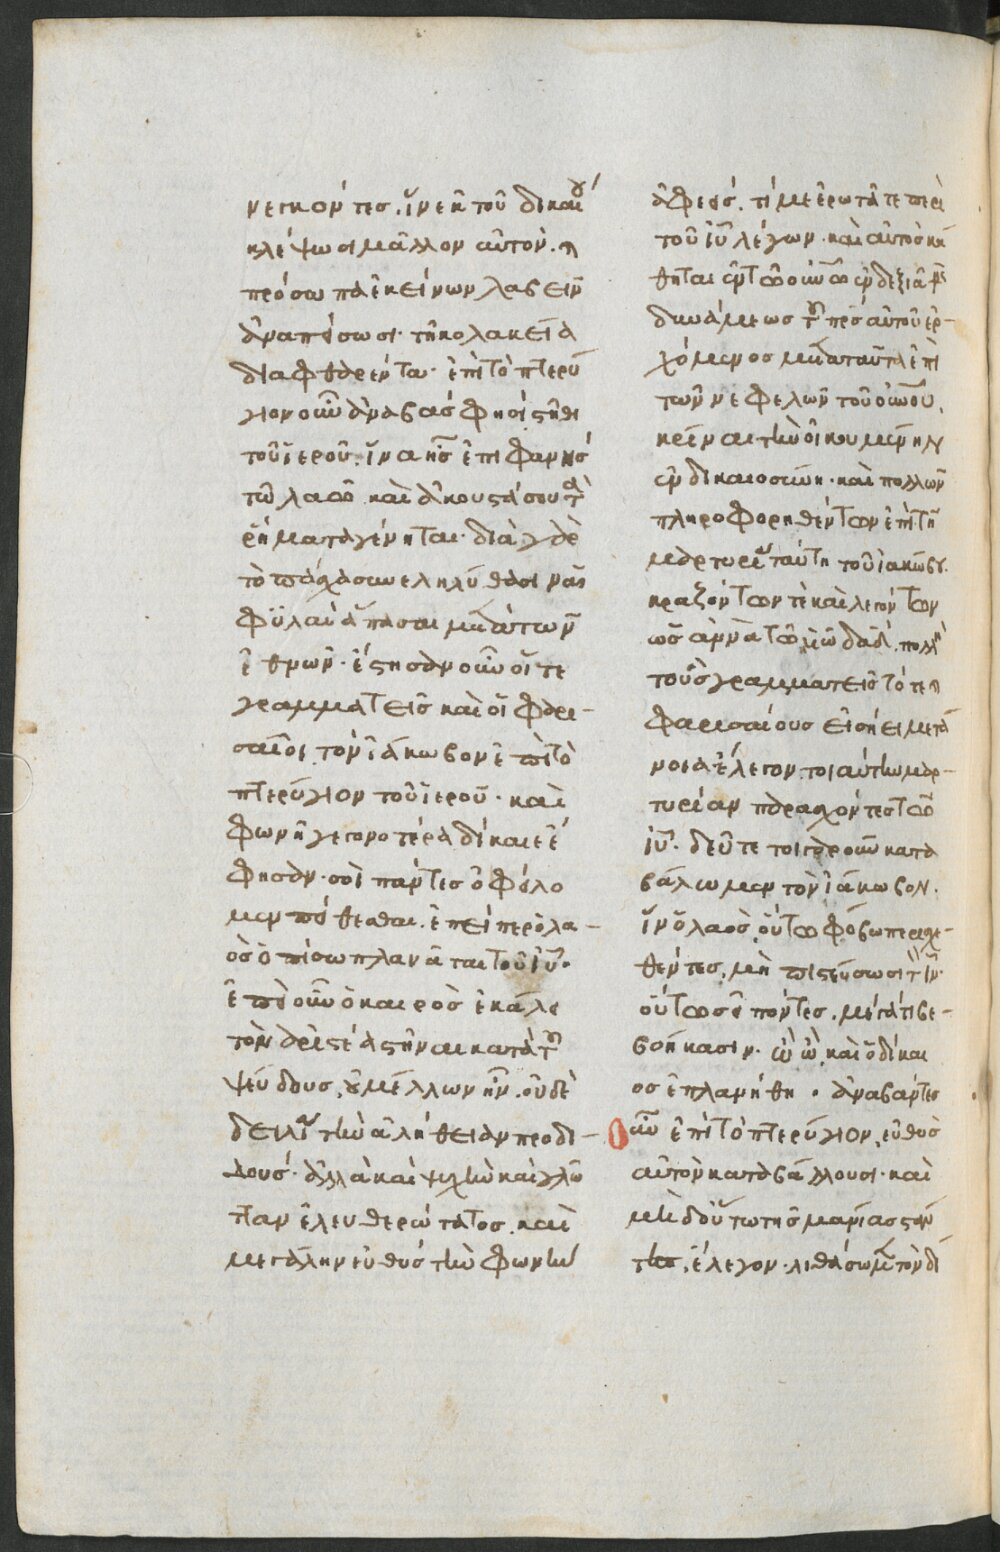 νεγκόντες. ἵν' ἐκ τοῦ δικαίου
κλέψωσι μᾶλλον αὐτὸν. ἢ
πρόσωπα ἐκείνων λαβεῖν
ἀναπείσωσι τῇ κολακείᾳ
διαφθαρέντα. ἐπὶ τὸ πτερύ
γιον οὖν ἀναβὰς φησὶ στῆθι
τοῦ ἱεροῦ. ἵνα ᾖς ἐπιφανὴς
τῷ λαῷ. καὶ ἀκουστά σου τὰ
ῥήματα γένηται. διὰ γὰρ
τὸ πάσχα συνεληλύθασι πᾶσαι
φυλαὶ ἅπασαι μετὰ τῶν
ἐθνῶν. ἔστησαν οὖν οἵ τε
γραμματεῖς καὶ οἱ φαρι-
σαῖοι τὸν ἰάκωβον ἐπὶ τὸ
πτερύγιον τοῦ ἱεροῦ. καὶ
φωνῇ γεγονοτέρᾳ δίκαιε ἔ
φησαν. σοὶ πάντες ὀφείλο
μεν πείθεσθαι. ἐπείπερ ὁ λα-
ὸς ὀπίσω πλανᾶται τοῦ ἰῦ.
ἐπεὶ οὖν ὁ καιρὸς ἐκάλει
τὸν ἀριστέα στῆναι κατὰ τοῦ
ψεύδους, οὐ μέλλων ἦν. οὐδὲ
δειλίᾳ τὴν ἀλήθειαν προδι-
δούς. ἀλλὰ καὶ ψυχὴν καὶ γλῶτ
ταν ἐλευθερώτατος. καὶ
μεγάλην εὐθὺς τὴν φωνὴν
ἀφιεὶς. τί με ἐρωτᾶτε περὶ
τοῦ ἰῦ λέγων. καὶ αὐτὸς κά
θηται ἐν τῷ οὐνῷ ἐν δεξιᾷ τῆς
δυνάμεως τοῦ πρς αὐτοῦ ἐρ-
χόμενος μετὰ ταῦτα ἐπὶ
τῶν νεφελῶν τοῦ οὐνοῦ.
κρῖναι τὴν οἰκουμένην
ἐν δικαιοσύνῃ. καὶ πολλῶν
πληροφορηθέντων ἐπὶ τῇ
μαρτυρίᾳ ταύτῃ τοῦ ἰακώβου.
κραζόντων τὲ καὶ λεγόντων
ὡσαννὰ τῷ υἱῷ δαδ. πολλὴ
τοὺς γραμματεῖς τότε καὶ
φαρισαίους εἰσῄει μετά
νοια ἔλεγον τοιαύτην μαρ-
τυρίαν παρασχόντες τῷ
ἰῦ. δεῦτε τοιγαροῦν κατα
βάλωμεν τὸν ἰάκωβον.
ἵν' ὁ λαὸς οὕτω φόβῳ περισχε-
θέντες, μὴ πιστεύσωσι τῷ ἰῦ.
οὕτως εἰπόντες. μετά τι βε-
βοήκασιν. ὢ ὢ, καὶ ὁ δίκαι
ος ἐπλανήθη. ἀναβάντες
οὖν ἐπὶ τὸ πτερύγιον, εὐθὺς
αὐτὸν καταβάλλουσι. καὶ
μηδ' οὕτω τῆς μανίας στάν
τες, ἔλεγον. λιθάσωμεν τὸν δί